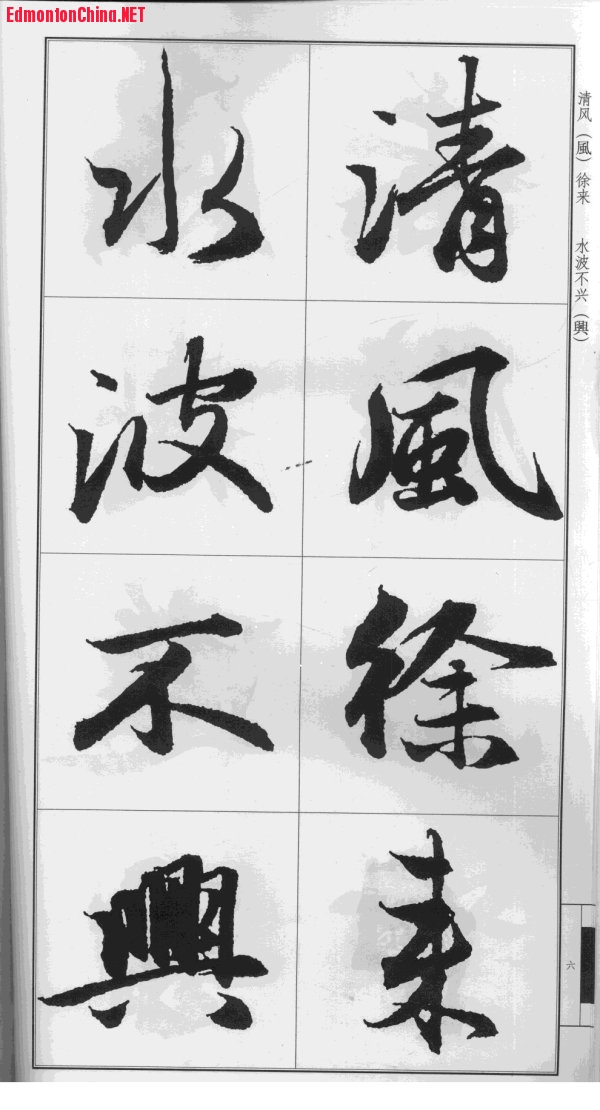 EdmontonChina.NET
清風徐来
水波不興
清风（風）徐来　水波不兴（興）
六